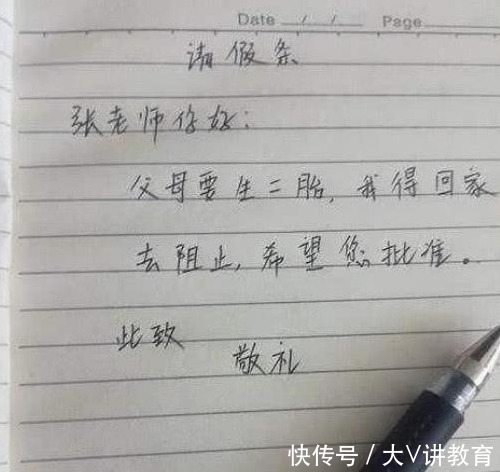 Date / / Page
请假条
张老师你好：
父母要生二胎，我得回家
去阻止，希望您批准。
此致
敬礼
快传号 / 大V讲教育